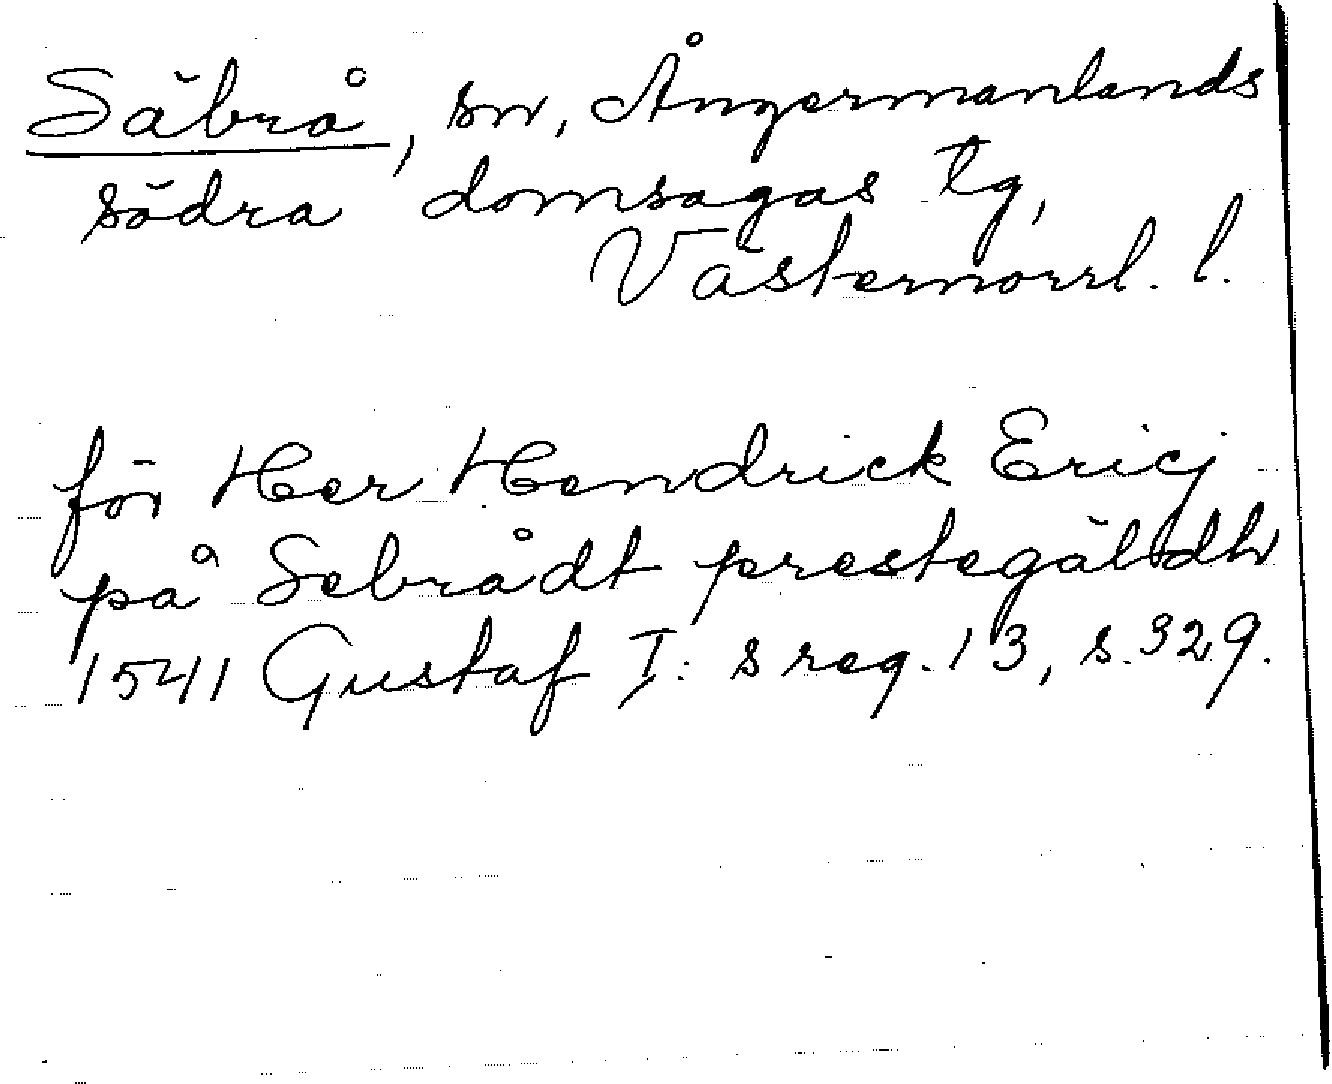 Säbrå, sn, Ångermanlands
södra domsagas tg,
Västernorrl. l.
för Her Hendrick Ericj
på Sebrådt prestegäldh
1541 Gustaf I:s reg. 13, s. 329.